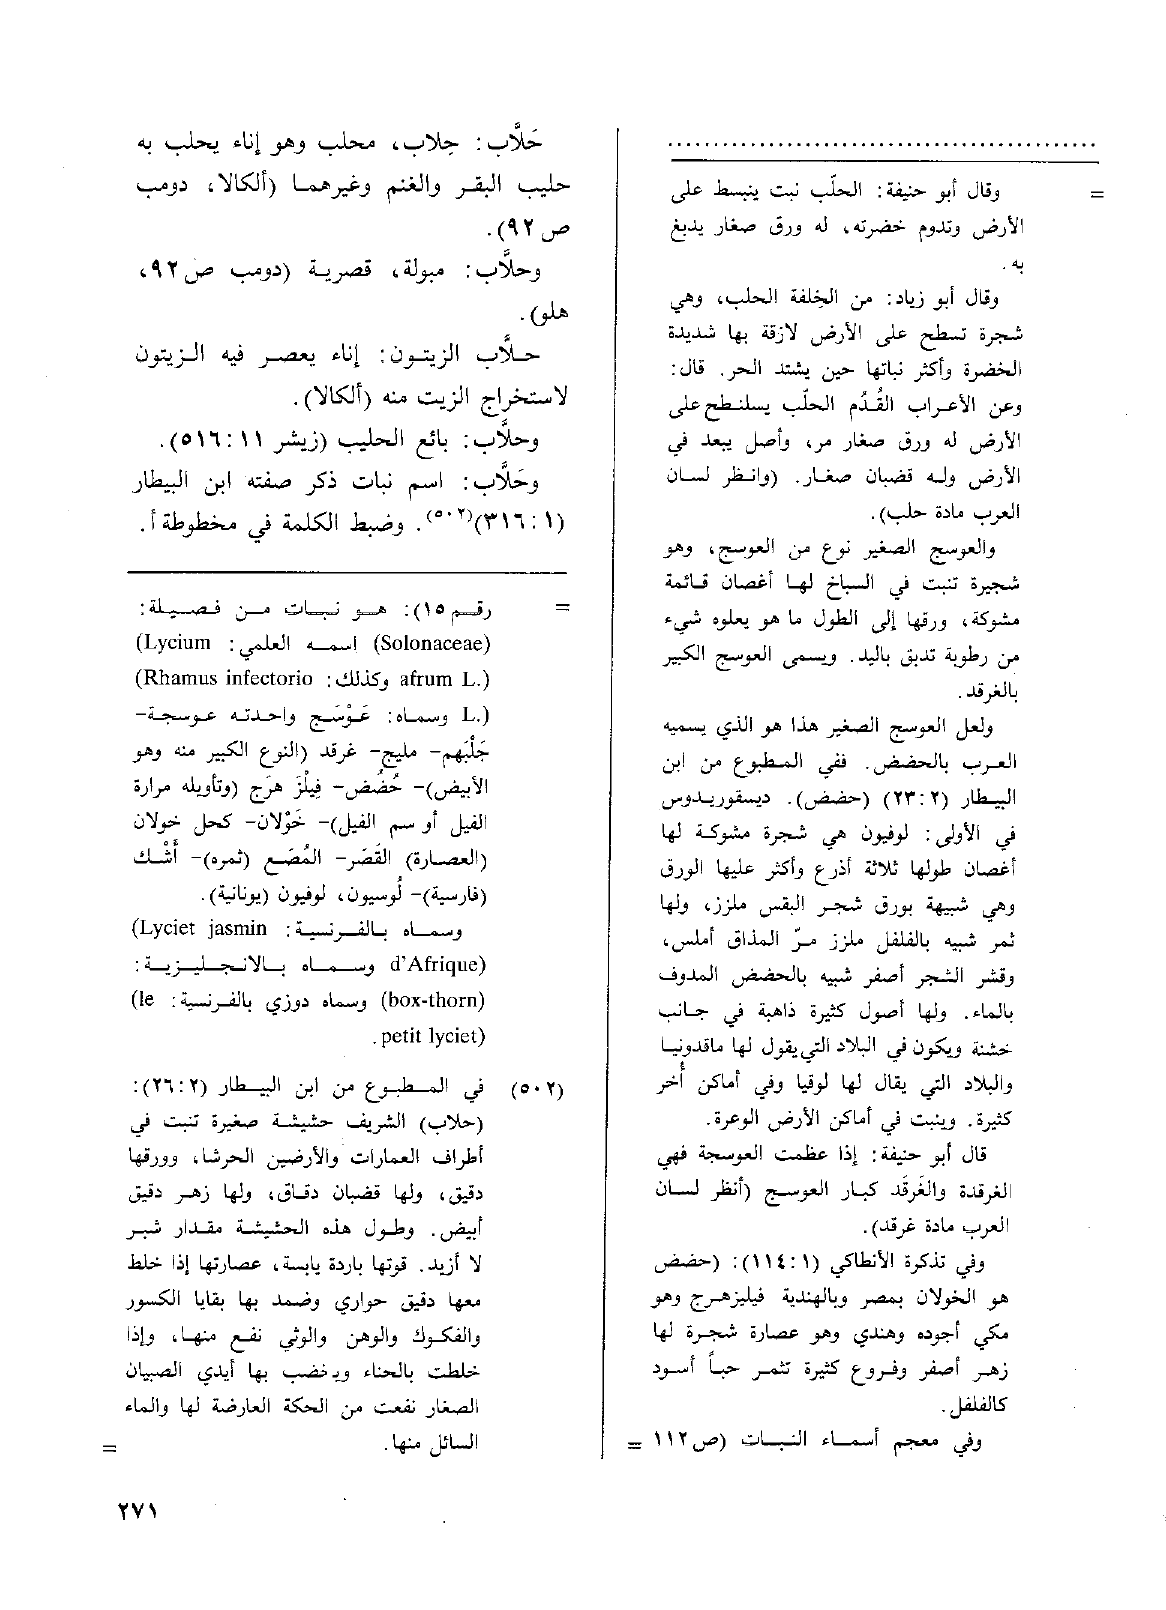 =
وقال أبو حنيفة: الحلّب نبت ينبسط على
الأرض وتدوم خضرته، له ورق صغار يدبغ
به.
وقال أبو زياد: من الخلفة الحلب، وهي
شجرة تسطح على الأرض لازقة بها شديدة
الخضرة وأكثر نباتها حين يشتد الحر. قال:
وعن الأعراب القُدُم الحلّب يسلنطح على
الأرض له ورق صغار مر، وأصل يبعد في
الأرض وله قضبان صغار. (وانظر لسان
العرب مادة حلب).
والعوسج الصغير نوع من العوسج، وهو
شجيرة تنبت في السباخ لها أغصان قائمة
مشوكة، ورقها إلى الطول ما هو يعلوه شيء
من رطوبة تدبق باليد. ويسمى العوسج الكبير
بالغرقد.
ولعل العوسج الصغير هذا هو الذي يسميه
العرب بالحضض. ففي المطبوع من ابن
البيطار (٢: ٢٣) (حضض). ديسقوريدوس
في الأولى: لوفيون هي شجرة مشوكة لها
أغصان طولها ثلاثة أذرع وأكثر عليها الورق
وهي شبيهة بورق شجر البقس ملزز، ولها
ثمر شبيه بالفلفل ملزز مرّ المذاق أملس،
وقشر الشجر أصفر شبيه بالحضض المدوف
بالماء. ولها أصول كثيرة ذاهبة في جانب
خشنة ويكون في البلاد التي يقول لها ماقدونيا
والبلاد التي يقال لها لوقيا وفي أماكن أُخر
كثيرة. وينبت في أماكن الأرض الوعرة.
قال أبو حنيفة: إذا عظمت العوسجة فهي
الغرقدة والغَرقَد كبار العوسج (أنظر لسان
العرب مادة غرقد).
وفي تذكرة الأنطاكي (١: ١١٤): (حضض
هو الخولان بمصر وبالهندية فيليزهرج وهو
مكي أجوده وهندي وهو عصارة شجرة لها
زهر أصفر وفروع كثيرة تثمر حباً أسود
كالفلفل.
وفي معجم أسماء النبات (ص ١١٢ =
حَلَّاب: جلاب، محلب وهو إناء يحلب به
حليب البقر والغنم وغيرهما (ألكالا، دومب
ص ٩٢).
وحلَّاب: مبولة، قصرية (دومب ص ٩٢،
هلو).
حلَّاب الزيتون: إناء يعصر فيه الزيتون
لاستخراج الزيت منه (ألكالا).
وحلَّاب: بائع الحليب (زيشر ١١: ٥١٦).
وحَلَّاب: اسم نبات ذكر صفته ابن البيطار
(١: ٣١٦)(٥٠٢). وضبط الكلمة في مخطوطة أ.
= رقم ١٥): هو نبات من فصيلة:
(Solonaceae) اسمه العلمي: (Lycium
afrum L.) وكذلك: (Rhamus infectorio
L.) وسماه: عَوْسَج واحدته عوسجة-
جَلْبَهم- مليج- غرقد (النوع الكبير منه وهو
الأبيض)- حُضُض- فِيلْزَ هرَج (وتأويله مرارة
الفيل أو سم الفيل)- خَوْلان- كحل خولان
(العصارة) القَصَر- المُصَع (ثمره)- أَشْك
(فارسية)- لُوسيون، لوفيون (يونانية).
وسماه بالفرنسية: (Lyciet jasmin
d'Afrique) وسماه بالانجليزية:
(box-thorn) وسماه دوزي بالفرنسية: (le
petit lyciet).
(٥٠٢) في المطبوع من ابن البيطار (٢: ٢٦):
(حلاب) الشريف حشيشة صغيرة تنبت في
أطراف العمارات والأرضين الحرشاء، وورقها
دقيق، ولها قضبان دقاق، ولها زهر دقيق
أبيض. وطول هذه الحشيشة مقدار شبر
لا أزيد. قوتها باردة يابسة، عصارتها إذا خلط
معها دقيق حواري وضمد بها بقايا الكسور
والفكوك والوهن والوثي نفع منها، وإذا
خلطت بالحناء ويخضب بها أيدي الصبيان
الصغار نفعت من الحكة العارضة لها والماء
السائل منها. =
٢٧١